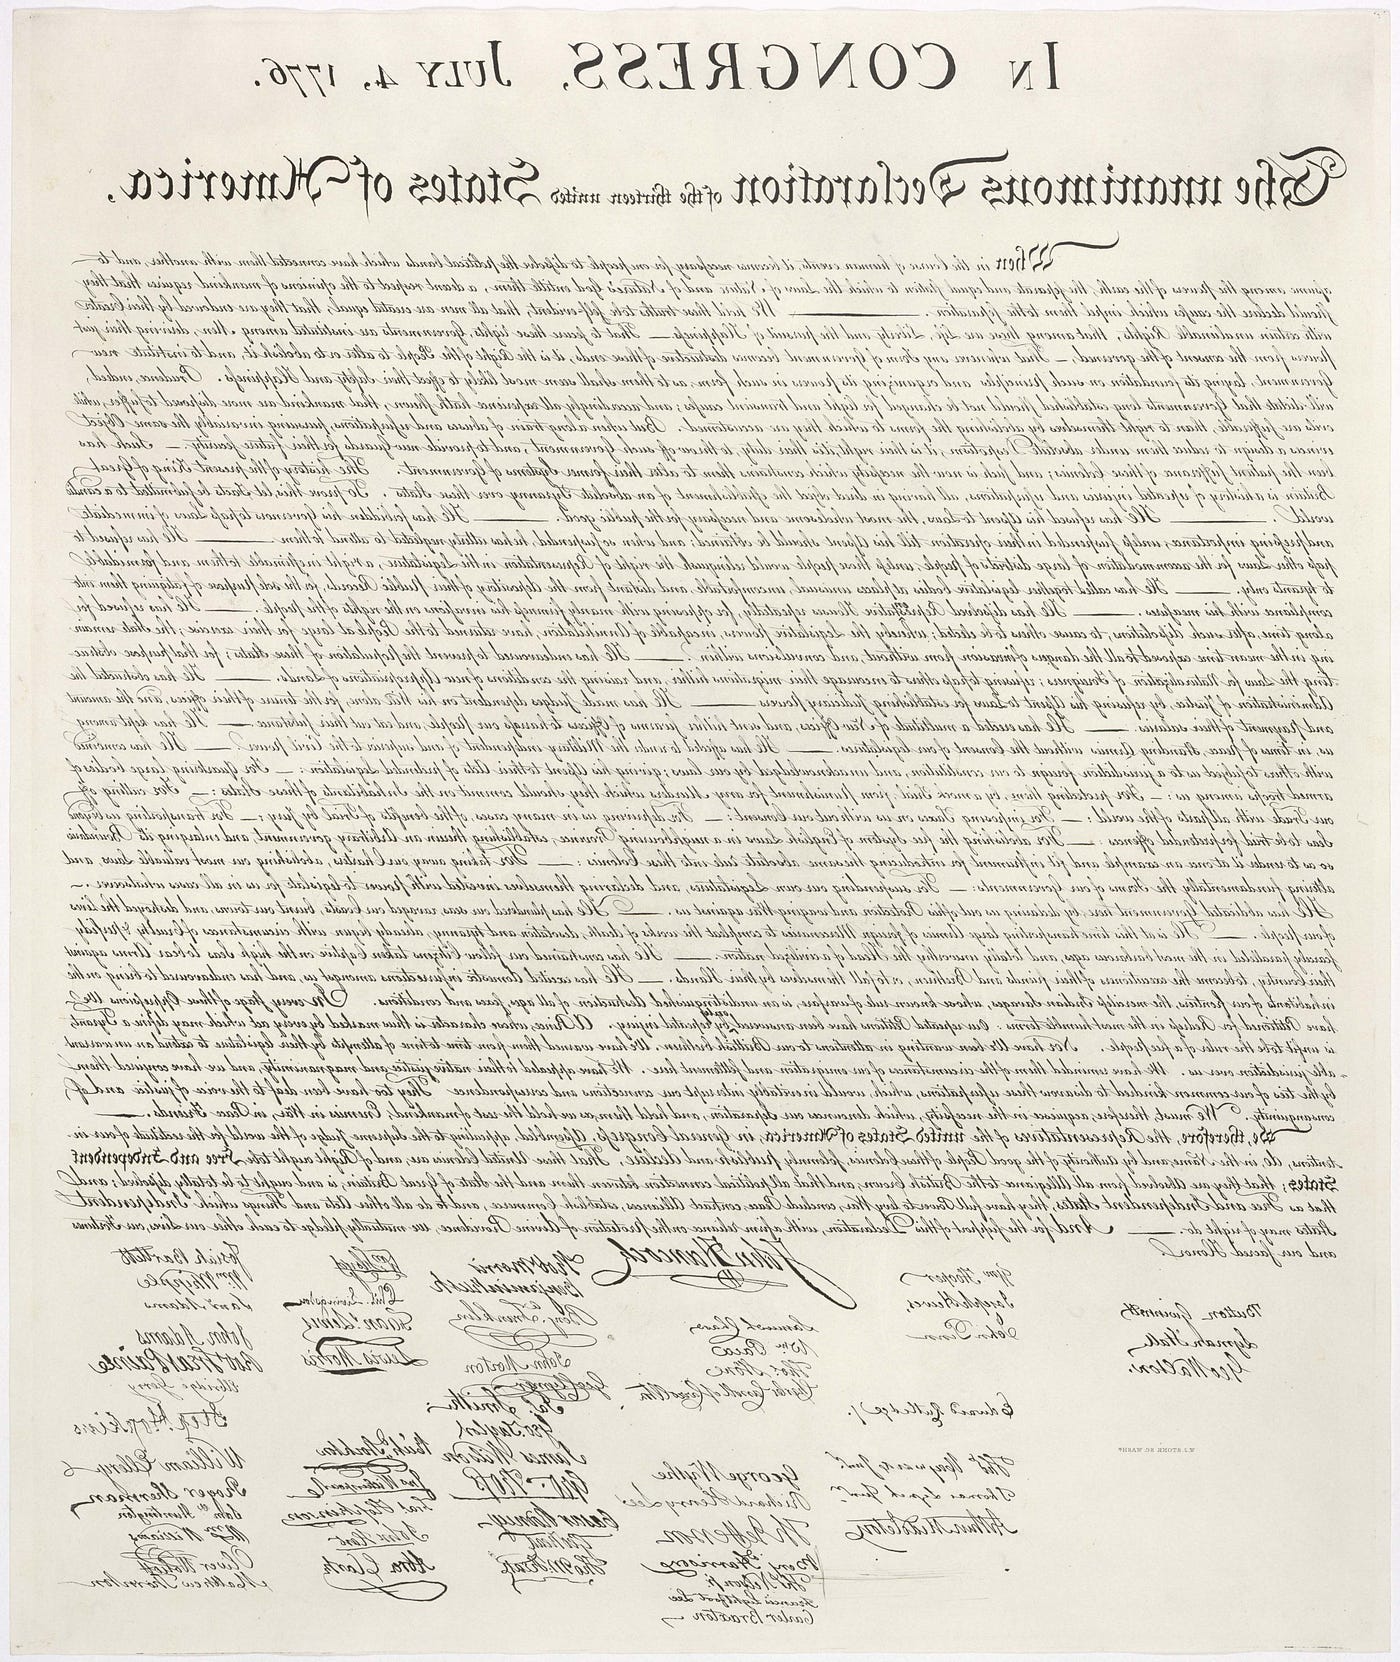 In CONGRESS, July 4, 1776.
The unanimous Declaration of the thirteen united States of America,
When in the Course of human events, it becomes necessary for one people to dissolve the political bands which have connected them with another, and to
assume among the powers of the earth, the separate and equal station to which the Laws of Nature and of Nature's God entitle them, a decent respect to the opinions of mankind requires that they
should declare the causes which impel them to the separation. — We hold these truths to be self-evident, that all men are created equal, that they are endowed by their Creator
with certain unalienable Rights, that among these are Life, Liberty and the pursuit of Happiness.— That to secure these rights, Governments are instituted among Men, deriving their just
powers from the consent of the governed,— That whenever any Form of Government becomes destructive of these ends, it is the Right of the People to alter or to abolish it, and to institute new
Government, laying its foundation on such principles and organizing its powers in such form, as to them shall seem most likely to effect their Safety and Happiness. Prudence, indeed,
will dictate that Governments long established should not be changed for light and transient causes; and accordingly all experience hath shewn, that mankind are more disposed to suffer, while
evils are sufferable, than to right themselves by abolishing the forms to which they are accustomed. But when a long train of abuses and usurpations, pursuing invariably the same Object
evinces a design to reduce them under absolute Despotism, it is their right, it is their duty, to throw off such Government, and to provide new Guards for their future security.— Such has
been the patient sufferance of these Colonies; and such is now the necessity which constrains them to alter their former Systems of Government. The history of the present King of Great
Britain is a history of repeated injuries and usurpations, all having in direct object the establishment of an absolute Tyranny over these States. To prove this, let Facts be submitted to a candid
world. — He has refused his Assent to Laws, the most wholesome and necessary for the public good. — He has forbidden his Governors to pass Laws of immediate
and pressing importance, unless suspended in their operation till his Assent should be obtained; and when so suspended, he has utterly neglected to attend to them. — He has refused to
pass other Laws for the accommodation of large districts of people, unless those people would relinquish the right of Representation in the Legislature, a right inestimable to them and formidable
to tyrants only. — He has called together legislative bodies at places unusual, uncomfortable, and distant from the depository of their Public Records, for the sole purpose of fatiguing them into
compliance with his measures. — He has dissolved Representative Houses repeatedly, for opposing with manly firmness his invasions on the rights of the people. — He has refused for
a long time, after such dissolutions, to cause others to be elected; whereby the Legislative powers, incapable of Annihilation, have returned to the People at large for their exercise; the State remain-
ing in the mean time exposed to all the dangers of invasion from without, and convulsions within. — He has endeavoured to prevent the population of these States; for that purpose obstruc-
ting the Laws for Naturalization of Foreigners; refusing to pass others to encourage their migrations hither, and raising the conditions of new Appropriations of Lands. — He has obstructed the
Administration of Justice, by refusing his Assent to Laws for establishing Judiciary powers. — He has made Judges dependent on his Will alone, for the tenure of their offices, and the amount
and payment of their salaries. — He has erected a multitude of New Offices, and sent hither swarms of Officers to harrass our people, and eat out their substance. — He has kept among
us, in times of peace, Standing Armies without the Consent of our legislatures. — He has affected to render the Military independent of and superior to the Civil power. — He has combined
with others to subject us to a jurisdiction foreign to our constitution, and unacknowledged by our laws; giving his Assent to their Acts of pretended Legislation: — For Quartering large bodies of
armed troops among us: — For protecting them, by a mock Trial, from punishment for any Murders which they should commit on the Inhabitants of these States: — For cutting off
our Trade with all parts of the world: — For imposing Taxes on us without our Consent: — For depriving us in many cases, of the benefits of Trial by Jury: — For transporting us beyond
Seas to be tried for pretended offences: — For abolishing the free System of English Laws in a neighbouring Province, establishing therein an Arbitrary government, and enlarging its Boundaries
so as to render it at once an example and fit instrument for introducing the same absolute rule into these Colonies: — For taking away our Charters, abolishing our most valuable Laws and
altering fundamentally the Forms of our Governments: — For suspending our own Legislatures, and declaring themselves invested with power to legislate for us in all cases whatsoever. —
He has abdicated Government here, by declaring us out of his Protection and waging War against us. — He has plundered our seas, ravaged our Coasts, burnt our towns, and destroyed the lives
of our people. — He is at this time transporting large Armies of foreign Mercenaries to compleat the works of death, desolation and tyranny, already begun with circumstances of Cruelty & perfidy
scarcely paralleled in the most barbarous ages, and totally unworthy the Head of a civilized nation. — He has constrained our fellow Citizens taken Captive on the high Seas to bear Arms against
their Country, to become the executioners of their friends and Brethren, or to fall themselves by their Hands. — He has excited domestic insurrections amongst us, and has endeavoured to bring on the
inhabitants of our frontiers, the merciless Indian Savages, whose known rule of warfare, is an undistinguished destruction of all ages, sexes and conditions. In every stage of these Oppressions We
have Petitioned for Redress in the most humble terms: Our repeated Petitions have been answered only by repeated injury. A Prince, whose character is thus marked by every act which may define a Tyrant,
is unfit to be the ruler of a free people. Nor have We been wanting in attentions to our Brittish brethren. We have warned them from time to time of attempts by their legislature to extend an unwarrant-
able jurisdiction over us. We have reminded them of the circumstances of our emigration and settlement here. We have appealed to their native justice and magnanimity, and we have conjured them
by the ties of our common kindred to disavow these usurpations, which, would inevitably interrupt our connections and correspondence. They too have been deaf to the voice of justice and of
consanguinity. We must, therefore, acquiesce in the necessity, which denounces our Separation, and hold them, as we hold the rest of mankind, Enemies in War, in Peace Friends. —
We, therefore, the Representatives of the united States of America, in General Congress, Assembled, appealing to the Supreme Judge of the world for the rectitude of our in-
tentions, do, in the Name, and by Authority of the good People of these Colonies, solemnly publish and declare, That these United Colonies are, and of Right ought to be Free and Independent
States; that they are Absolved from all Allegiance to the British Crown, and that all political connection between them and the State of Great Britain, is and ought to be totally dissolved; and
that as Free and Independent States, they have full Power to levy War, conclude Peace, contract Alliances, establish Commerce, and to do all other Acts and Things which Independent
States may of right do. — And for the support of this Declaration, with a firm reliance on the protection of divine Providence, we mutually pledge to each other our Lives, our Fortunes
and our sacred Honor.
Button Gwinnett
Lyman Hall
Geo Walton.
W. J. STONE SC. WASHN
Wm Hooper
Joseph Hewes,
John Penn
Edward Rutledge /.
Thos Heyward Junr.
Thomas Lynch Junr.
Arthur Middleton
John Hancock
Samuel Chase
Wm Paca
Thos Stone
Charles Carroll of Carrollton
George Wythe
Richard Henry Lee
Th Jefferson
Benj Harrison
Thos Nelson jr.
Francis Lightfoot Lee
Carter Braxton
Robt Morris
Benjamin Rush
Benja. Franklin
John Morton
Geo Clymer
Jas. Smith.
Geo. Taylor
James Wilson
Geo. Ross
Caesar Rodney
Geo Read
Tho M:Kean
Wm Floyd
Phil. Livingston
Frans. Lewis
Lewis Morris
Richd. Stockton
Jno Witherspoon
Fras. Hopkinson
John Hart
Abra Clark
Josiah Bartlett
Wm: Whipple
Saml Adams
John Adams
Robt Treat Paine
Elbridge Gerry
Step. Hopkins
William Ellery
Roger Sherman
Saml Huntington
Wm Williams
Oliver Wolcott
Matthew Thornton